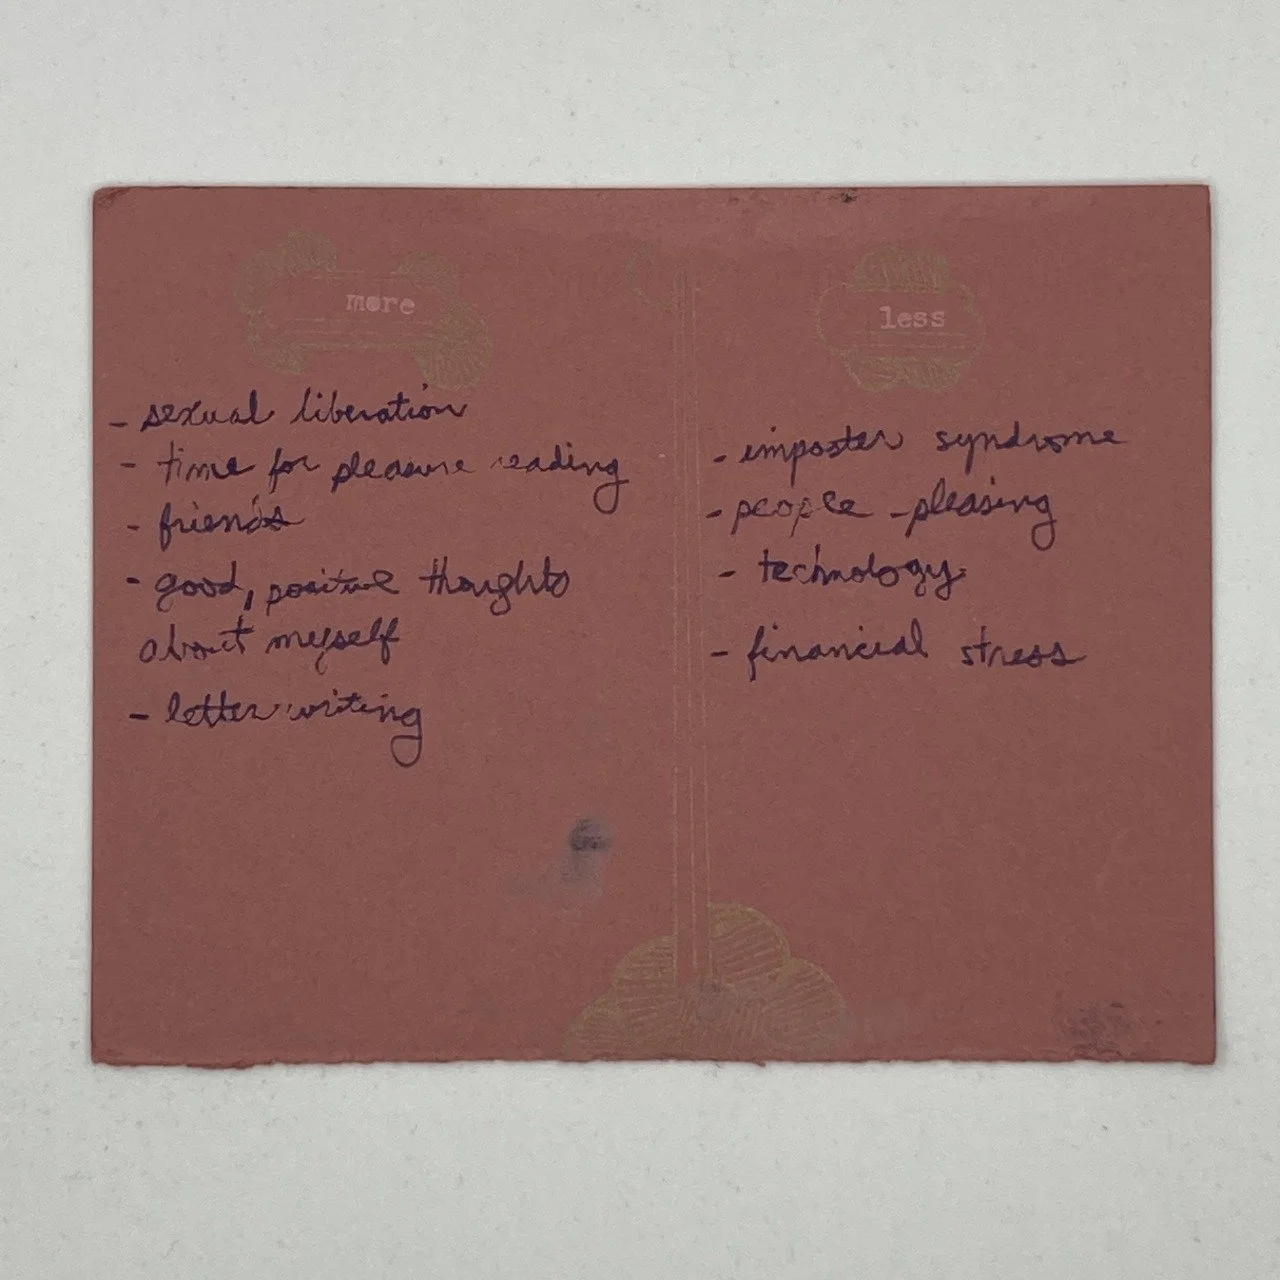 more
- sexual liberation
- time for pleasure reading
- friends
- good, positive thoughts
about myself
- letter writing
less
- imposter syndrome
- people-pleasing
- technology
- financial stress